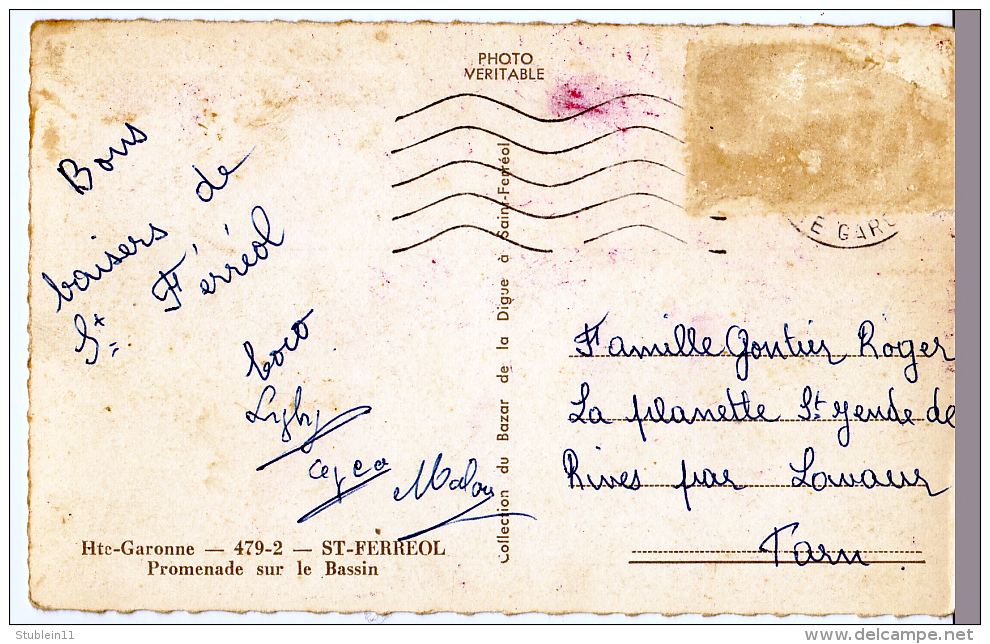 PHOTO
VERITABLE
E GARO
Bons
baisers de
St Férréol
Coco
Lyly
Malou
Collection du Bazar de la Digue à Saint-Ferréol
Famille Gontier Roger
La planette St Jende de
Rives par Lavaur
Tarn
Hte-Garonne — 479-2 — ST-FERREOL
Promenade sur le Bassin
Stublein11
www.delcampe.net